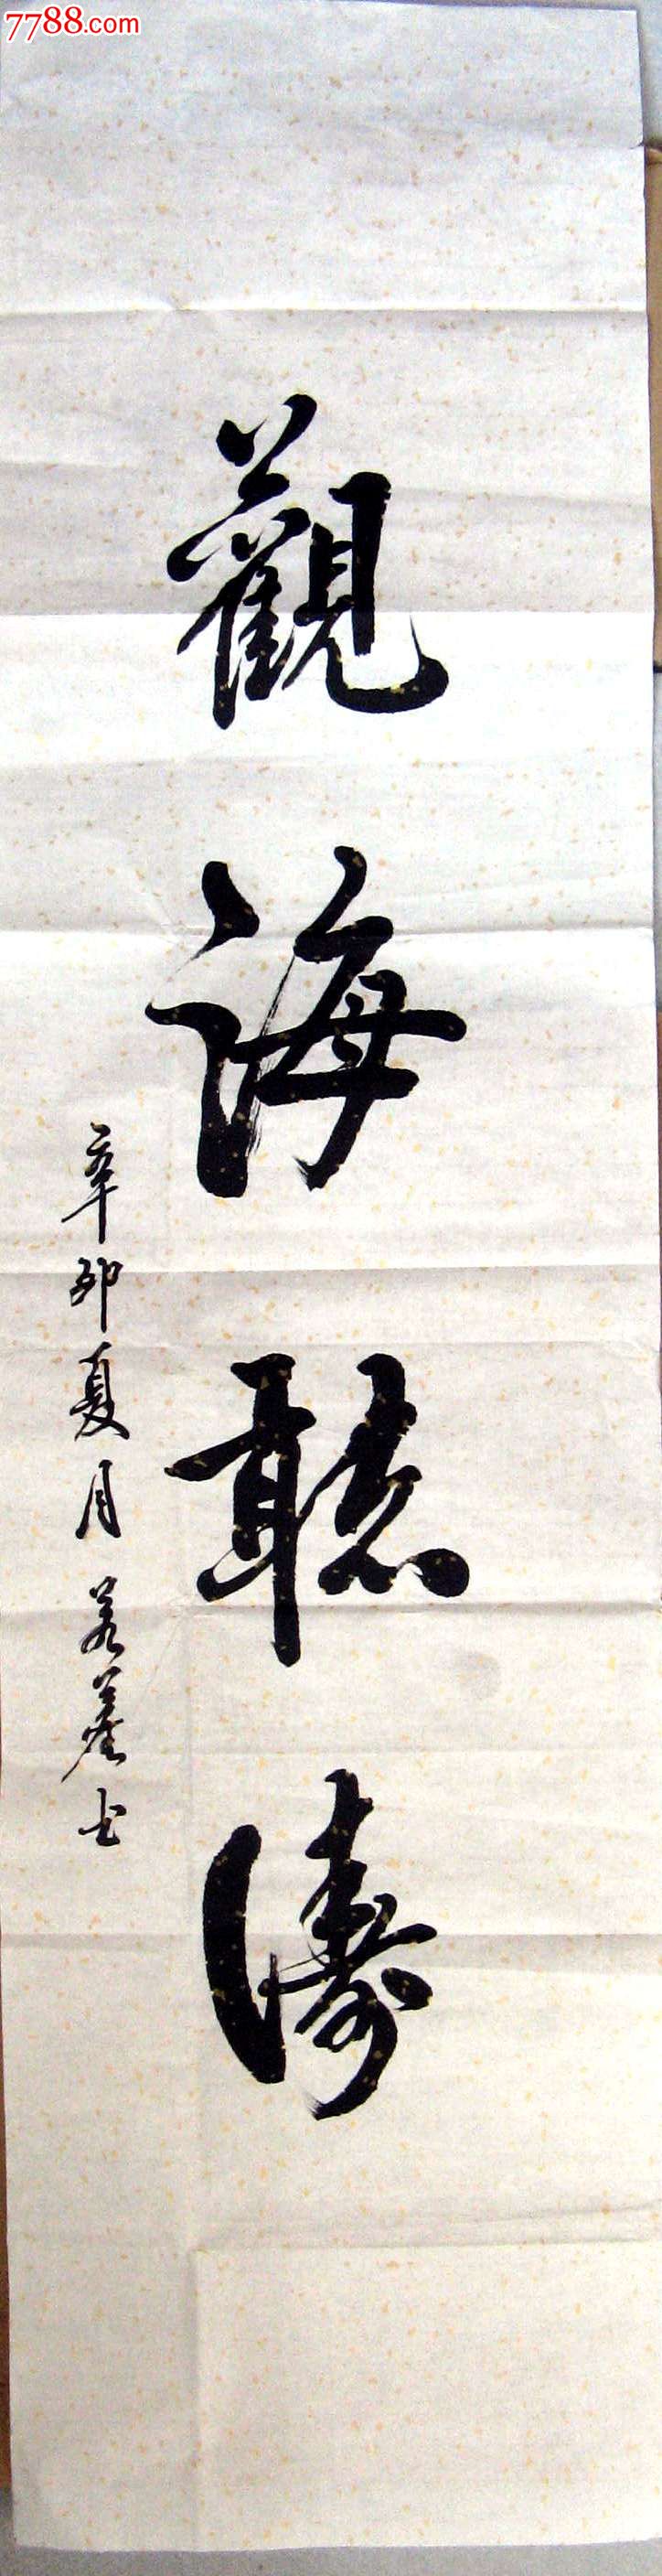 7788.com
觀海聽濤
辛卯夏月 若崖书